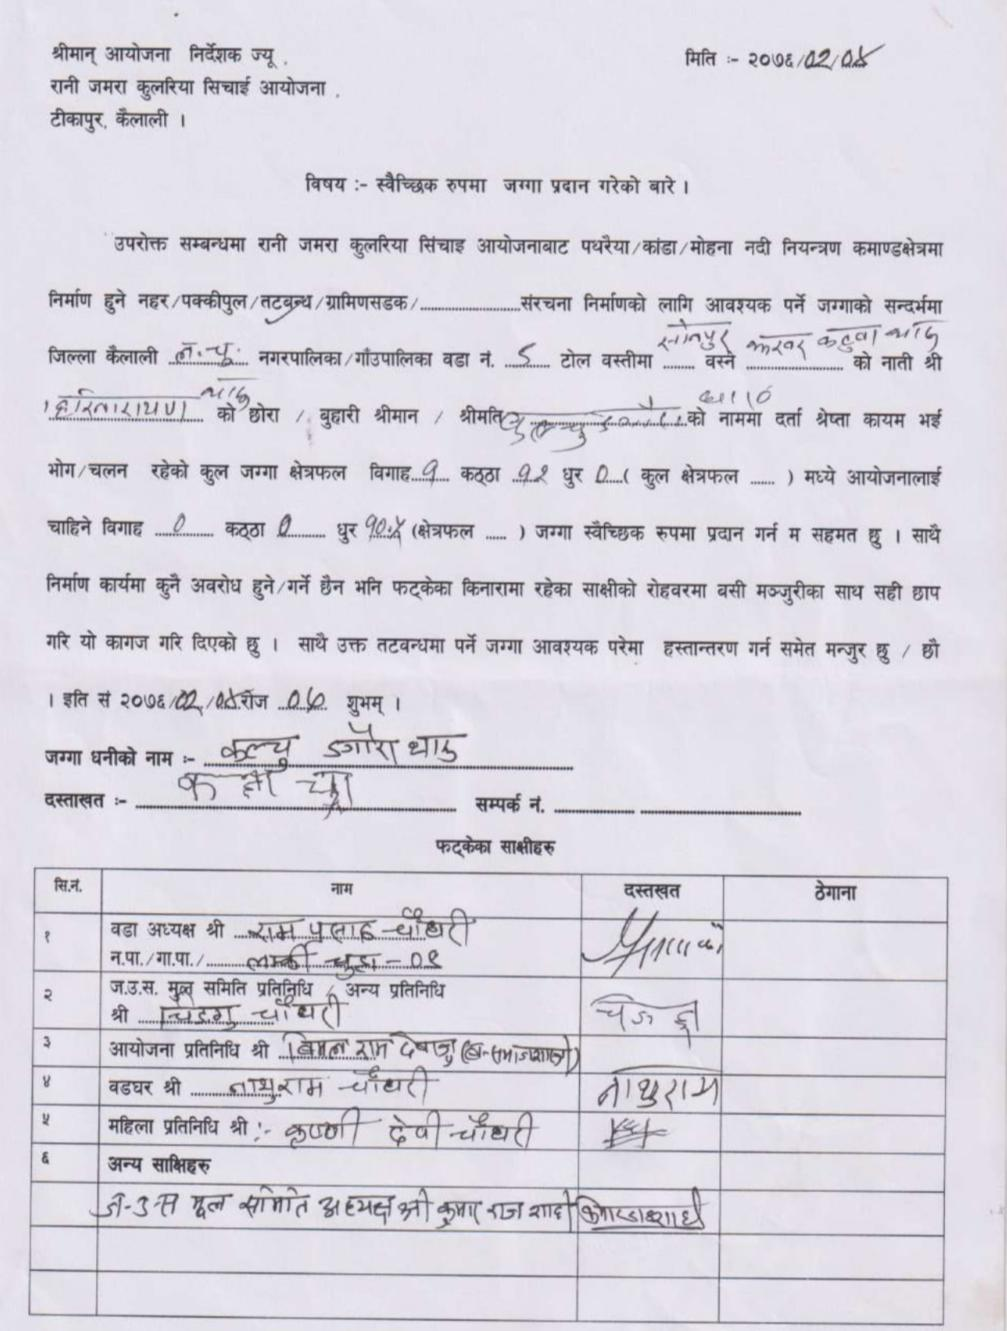 श्रीमान् आयोजना निर्देशक ज्यू .
मिति :- २०७६/02/0५
रानी जमरा कुलरिया सिचाई आयोजना .
टीकापुर, कैलाली ।
विषय :- स्वैच्छिक रुपमा जग्गा प्रदान गरेको बारे ।
उपरोक्त सम्बन्धमा रानी जमरा कुलरिया सिंचाइ आयोजनाबाट पथरैया/कांडा/मोहना नदी नियन्त्रण कमाण्डक्षेत्रमा
निर्माण हुने नहर/पक्कीपुल/तटबन्ध/ग्रामिणसडक/....................संरचना निर्माणको लागि आवश्यक पर्ने जग्गाको सन्दर्भमा
जिल्ला कैलाली ल.चु. नगरपालिका/गाँउपालिका वडा नं. 5 टोल वस्तीमा सोनपुर वस्ने कटुवा थारु को नाती श्री
थारु को छोरा / बुहारी श्रीमान / श्रीमति को नाममा दर्ता श्रेष्ता कायम भई
भोग/चलन रहेको कुल जग्गा क्षेत्रफल विगाह..१.. कठ्ठा ..१२ धुर 0...( कुल क्षेत्रफल ...... ) मध्ये आयोजनालाई
चाहिने विगाह ...0... कठ्ठा 0... धुर १०.५ (क्षेत्रफल ...... ) जग्गा स्वैच्छिक रुपमा प्रदान गर्न म सहमत छु । साथै
निर्माण कार्यमा कुनै अवरोध हुने/गर्ने छैन भनि फट्केका किनारामा रहेका साक्षीको रोहवरमा बसी मञ्जुरीका साथ सही छाप
गरि यो कागज गरि दिएको छु । साथै उक्त तटबन्धमा पर्ने जग्गा आवश्यक परेमा हस्तान्तरण गर्न समेत मन्जुर छु / छौ
। इति सं २०७६/02/0५रोज शुभम् ।
जग्गा धनीको नाम :- कल्चु डगौरा थारु
दस्ताखत :- सम्पर्क नं. ........................................
फट्केका साक्षीहरु
सि.नं. नाम दस्तखत ठेगाना
१ वडा अध्यक्ष श्री राम प्रसाद चौधरी
न.पा./गा.पा./ लम्की चुहा - 0१
२ ज.उ.स. मुल समिति प्रतिनिधि / अन्य प्रतिनिधि
श्री चिङगु चौधरी
३ आयोजना प्रतिनिधि श्री विमल राम
४ वडघर श्री नाथुराम चौधरी नाथुराम
५ महिला प्रतिनिधि श्री :- कृष्णी देवी चौधरी
६ अन्य साक्षिहरु
ज.उ.स मूल समिति अध्यक्ष श्री कुमार राज शाही